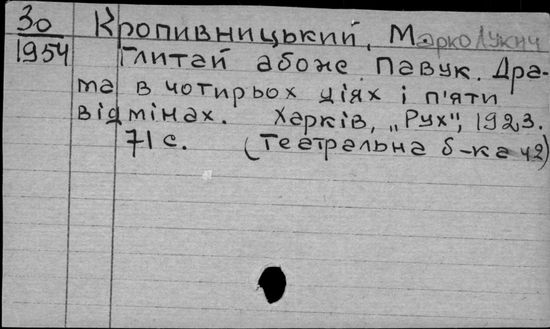 30
1954
Кропивницький, Марко Лукич
Глитай абоже павук. Дра-
ма в чотирьох діях і п'яти
відмінах. Харків, „Рух", 1923.
71 с. (Театральна б-ка ч2)